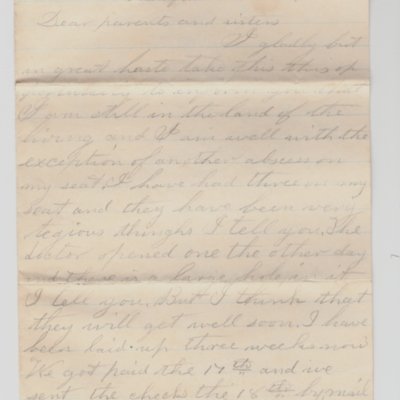 Dear parents and sisters
I gladly but
in great haste take this this op
to inform you that
I am still in the land of the
living and I am well with the
exception of another absess on
my seat. I have had three on my
seat and they have been very
tegious thinghs I tell you. The
doctor opened one the other day
and there is a large hole in it
I tell you. But I think that
they will get well soon. I have
been laid up three weeks now
We got paid the 17th and we
sent the checks the 18th by mail